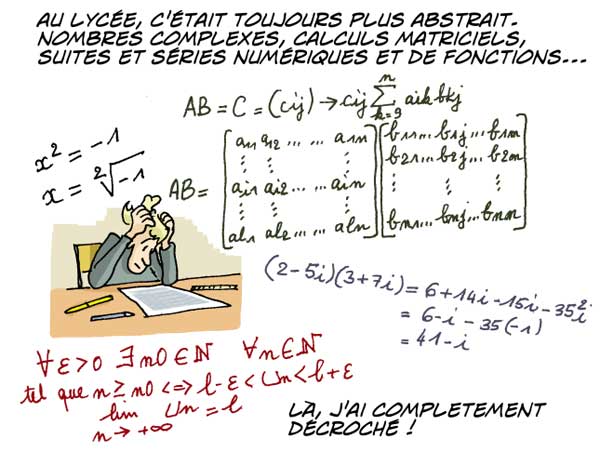 AU LYCÉE, C'ÉTAIT TOUJOURS PLUS ABSTRAIT.
NOMBRES COMPLEXES, CALCULS MATRICIELS,
SUITES ET SÉRIES NUMÉRIQUES ET DE FONCTIONS...
AB = C = (cij) → cij n∑k=9 aik bkj
x² = -1
x = ²√-1
AB= [a11 a12 ... ... a1n] [b11... b1j ... b1m]
[⋮ ⋮ ⋮] [b21... b2j ... b2m]
[ai1 ai2 ... ... ain] [⋮ ⋮ ⋮]
[⋮ ⋮ ⋮]
[al1 al2 ... ... aln] [bn1... bnj ... bnm]
(2-5i)(3+7i) = 6+14i-15i-35i²
= 6-i-35(-1)
= 41-i
∀ε>0 ∃n0∈ℕ ∀n∈ℕ
tel que n≥n0 <=> l-ε<Un<l+ε
lim Un = l
n→+∞
LÀ, J'AI COMPLETEMENT
DÉCROCHÉ !